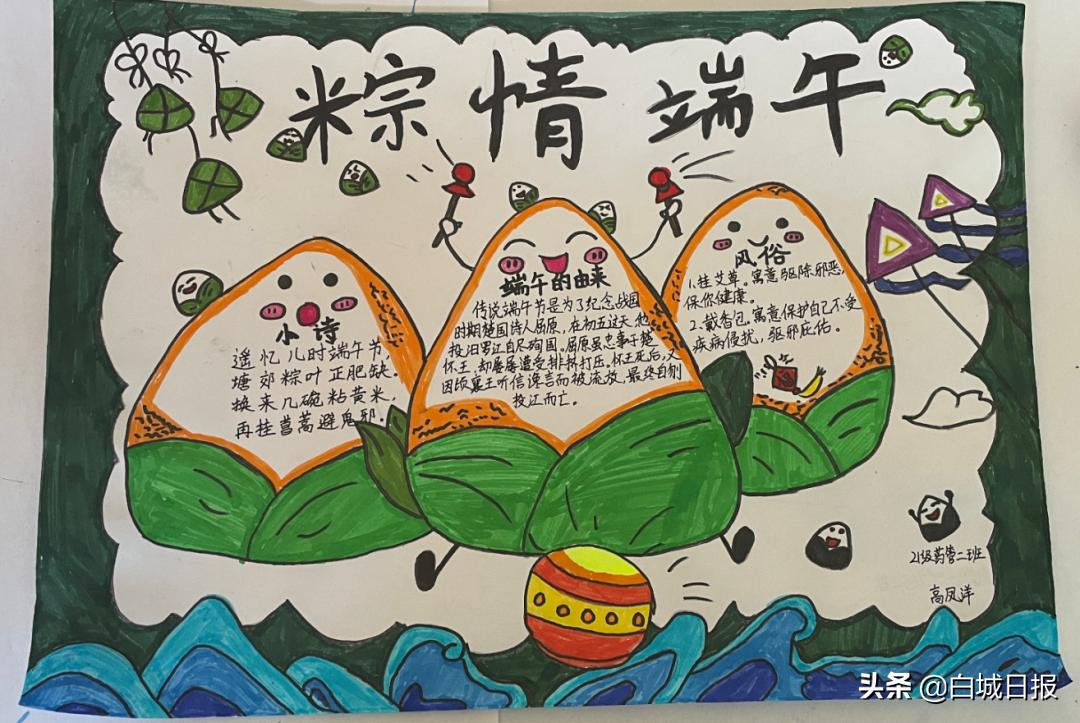 粽情端午
小诗
遥忆儿时端午节，
塘郊粽叶正肥缺。
换来几碗粘黄米，
再挂菖蒿避鬼邪。
端午的由来
传说端午节是为了纪念战国
时期楚国诗人屈原，在初五这天他
投汨罗江自尽殉国。屈原虽忠事于楚
怀王，却屡屡遭受排挤打压，怀王死后，又
因顷襄王听信谗言而被流放，最终自刎
投江而亡。
风俗
1.挂艾草。寓意驱除邪恶，
保你健康。
2.戴香包，寓意保护自己不受
疾病侵扰，驱邪庇佑。
21级药管二班
高凤洋
头条 @白城日报